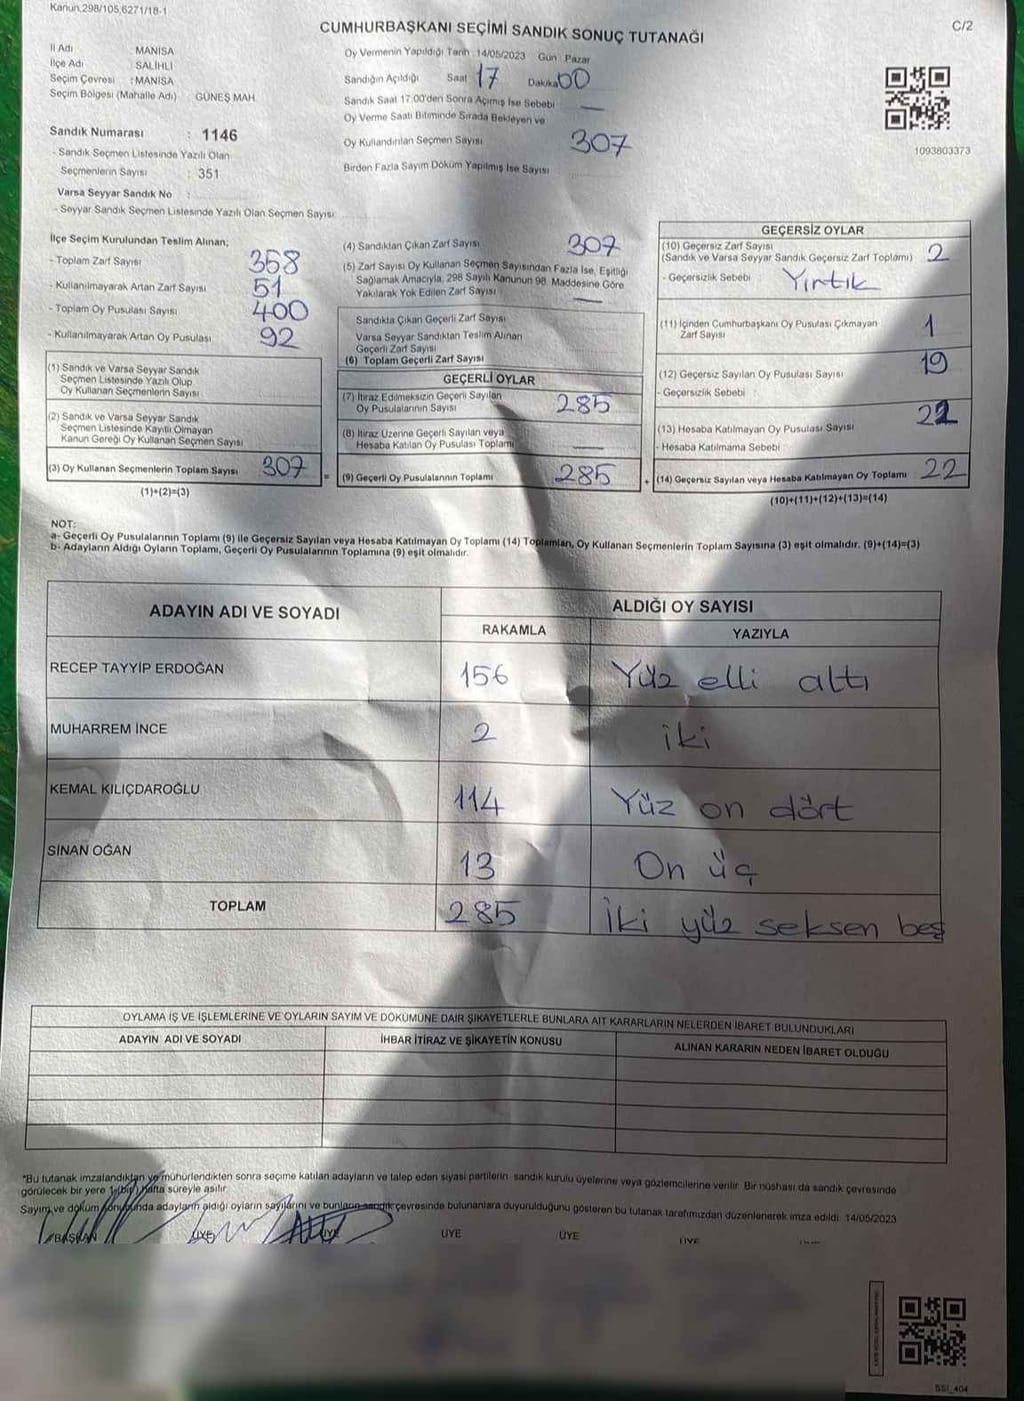 Kanun,298/105,6271/18-1
CUMHURBAŞKANI SEÇİMİ SANDIK SONUÇ TUTANAĞI
C/2
İl Adı : MANİSA
İlçe Adı : SALİHLİ
Seçim Çevresi : MANİSA
Seçim Bölgesi (Mahalle Adı) : GÜNEŞ MAH.
Sandık Numarası : 1146
- Sandık Seçmen Listesinde Yazılı Olan
Seçmenlerin Sayısı : 351
Varsa Seyyar Sandık No :
- Seyyar Sandık Seçmen Listesinde Yazılı Olan Seçmen Sayısı:
Oy Vermenin Yapıldığı Tarih : 14/05/2023 Gün : Pazar
Sandığın Açıldığı Saat 17 Dakika 00
Sandık Saat 17:00'den Sonra Açımış İse Sebebi —
Oy Verme Saati Bitiminde Sırada Bekleyen ve
Oy Kullandırılan Seçmen Sayısı 307
Birden Fazla Sayım Döküm Yapılmış İse Sayısı
1093803373
İlçe Seçim Kurulundan Teslim Alınan;
- Toplam Zarf Sayısı 358
- Kullanılmayarak Artan Zarf Sayısı 51
- Toplam Oy Pusulası Sayısı 400
- Kullanılmayarak Artan Oy Pusulası 92
(1) Sandık ve Varsa Seyyar Sandık
Seçmen Listesinde Yazılı Olup
Oy Kullanan Seçmenlerin Sayısı
(2) Sandık ve Varsa Seyyar Sandık
Seçmen Listesinde Kayıtlı Olmayan
Kanun Gereği Oy Kullanan Seçmen Sayısı
(3) Oy Kullanan Seçmenlerin Toplam Sayısı 307
(1)+(2)=(3)
(4) Sandıktan Çıkan Zarf Sayısı 307
(5) Zarf Sayısı Oy Kullanan Seçmen Sayısından Fazla İse, Eşitliği
Sağlamak Amacıyla, 298 Sayılı Kanunun 98. Maddesine Göre
Yakılarak Yok Edilen Zarf Sayısı —
Sandıkta Çıkan Geçerli Zarf Sayısı
Varsa Seyyar Sandıktan Teslim Alınan
Geçerli Zarf Sayısı
(6) Toplam Geçerli Zarf Sayısı
GEÇERLİ OYLAR
(7) İtiraz Edilmeksizin Geçerli Sayılan
Oy Pusulalarının Sayısı 285
(8) İtiraz Üzerine Geçerli Sayılan veya
Hesaba Katılan Oy Pusulası Toplamı —
= (9) Geçerli Oy Pusulalarının Toplamı 285
GEÇERSİZ OYLAR
(10) Geçersiz Zarf Sayısı
(Sandık ve Varsa Seyyar Sandık Geçersiz Zarf Toplamı) 2
- Geçersizlik Sebebi : Yırtık
(11) İçinden Cumhurbaşkanı Oy Pusulası Çıkmayan
Zarf Sayısı 1
(12) Geçersiz Sayılan Oy Pusulası Sayısı 19
- Geçersizlik Sebebi :
(13) Hesaba Katılmayan Oy Pusulası Sayısı 22
- Hesaba Katılmama Sebebi
+ (14) Geçersiz Sayılan veya Hesaba Katılmayan Oy Toplamı 22
(10)+(11)+(12)+(13)=(14)
NOT:
a- Geçerli Oy Pusulalarının Toplamı (9) ile Geçersiz Sayılan veya Hesaba Katılmayan Oy Toplamı (14) Toplamları, Oy Kullanan Seçmenlerin Toplam Sayısına (3) eşit olmalıdır. (9)+(14)=(3)
b- Adayların Aldığı Oyların Toplamı, Geçerli Oy Pusulalarının Toplamına (9) eşit olmalıdır.
ADAYIN ADI VE SOYADI
ALDIĞI OY SAYISI
RAKAMLA YAZIYLA
RECEP TAYYİP ERDOĞAN 156 Yüz elli altı
MUHARREM İNCE 2 iki
KEMAL KILIÇDAROĞLU 114 Yüz on dört
SİNAN OĞAN 13 On üç
TOPLAM 285 İki yüz seksen beş
OYLAMA İŞ VE İŞLEMLERİNE VE OYLARIN SAYIM VE DÖKÜMÜNE DAİR ŞİKAYETLERLE BUNLARA AİT KARARLARIN NELERDEN İBARET BULUNDUKLARI
ADAYIN ADI VE SOYADI İHBAR İTİRAZ VE ŞİKAYETİN KONUSU ALINAN KARARIN NEDEN İBARET OLDUĞU
*Bu tutanak imzalandıktan ve mühürlendikten sonra seçime katılan adayların ve talep eden siyasi partilerin sandık kurulu üyelerine veya gözlemcilerine verilir. Bir nüshası da sandık çevresinde
görülecek bir yere 1 (bir) hafta süreyle asılır
Sayım ve döküm sonucunda adayların aldığı oyların sayılarını ve bunların sandık çevresinde bulunanlara duyurulduğunu gösteren bu tutanak tarafımızdan düzenlenerek imza edildi. 14/05/2023
BAŞKAN ÜYE ÜYE ÜYE ÜYE ÜYE
SSI_404